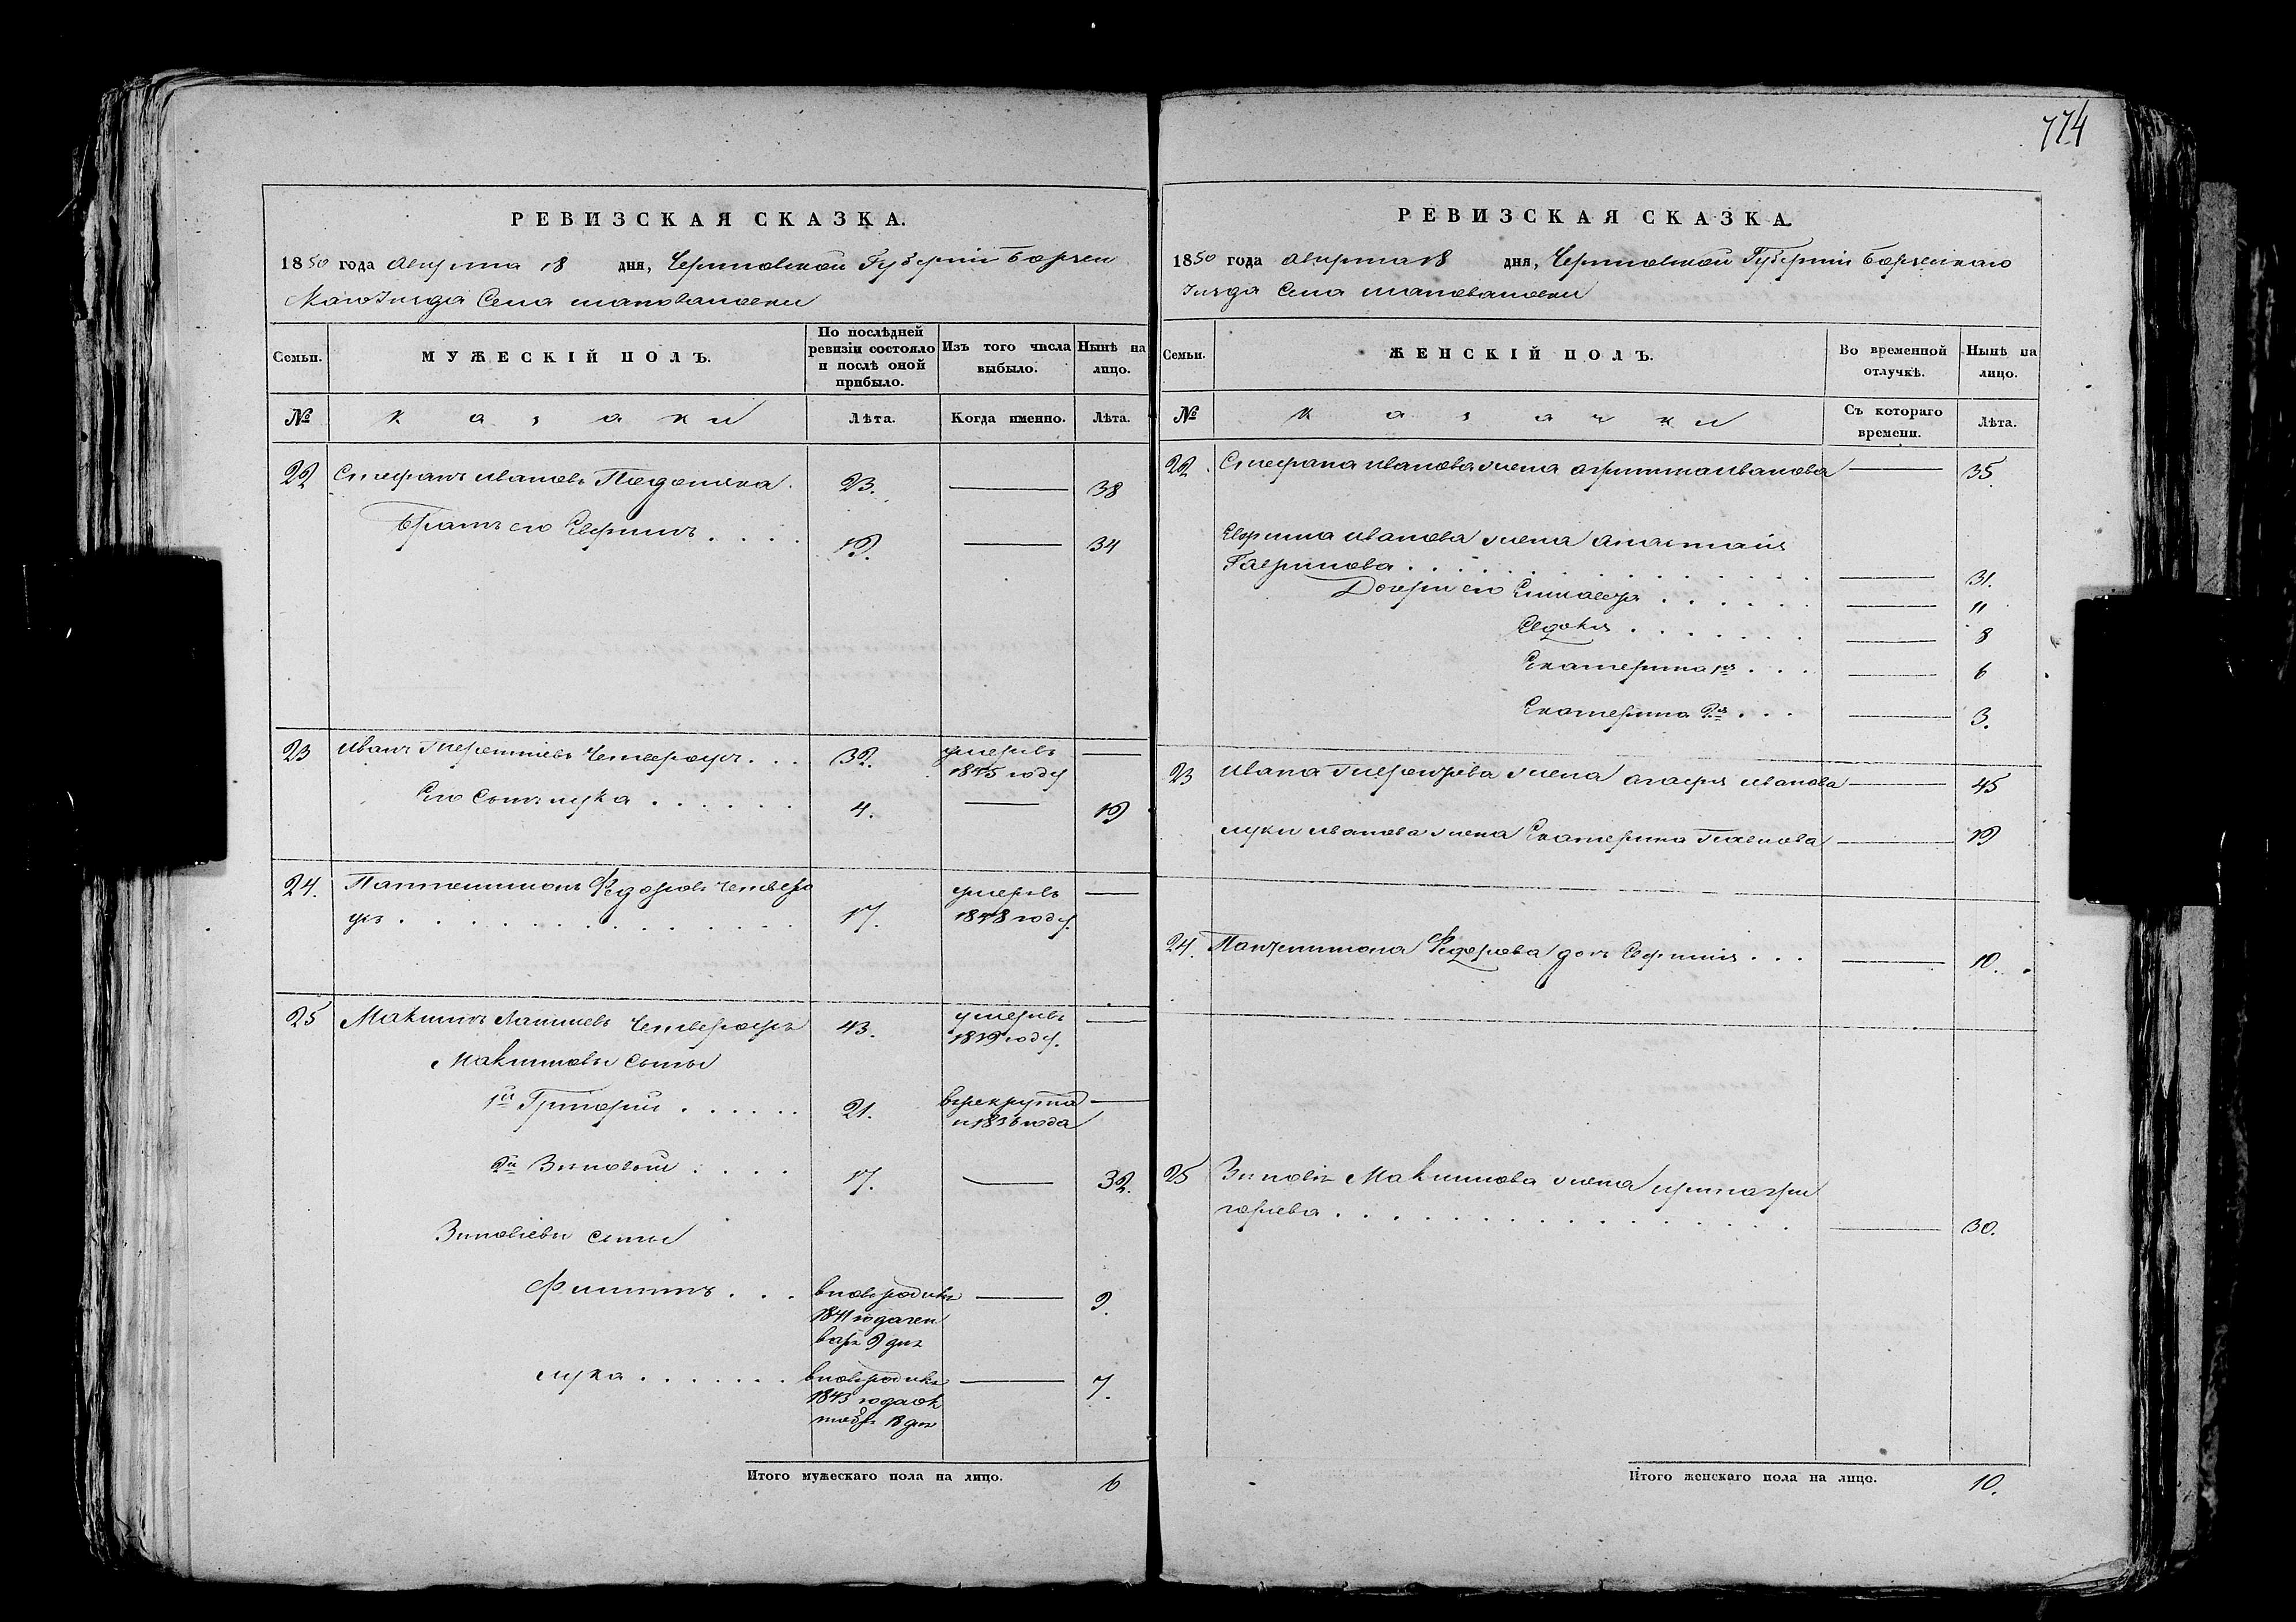 774
РЕВИЗСКАЯ СКАЗКА.
1850 года августа 18 дня, Черниговской Губерніи Борзен
скаго Уезда Села шаповаловки
Семьи. МУЖЕСКІЙ ПОЛЪ. По послѣдней ревизіи состояло и послѣ оной прибыло. Изъ того числа выбыло. Нынѣ на лицо.
№ казаки Лѣта. Когда именно. Лѣта.
22 Стефанъ ивановъ 23. 38
Братъ его Евфимъ 19. 34
23 иванъ Терентиевъ Четвероухъ 32. умеръ въ 1845 году
Его Сынъ лука 4. 19
24. Пантелимонъ Федоровъ Четверо
ухъ 17. умеръ въ 1848 году.
25 Максимъ Четвероухъ 43. умеръ въ 1839 году.
Максимовы сыны
1й Григорий 21. в рекрутах с 1836 года
2й Зиновий 17. 32.
Зиновіевы сыны
Филипъ вновь родився 1841 года генваря 9 дня 9.
лука вновь родився 1843 года октября 18 дня 7.
Итого мужескаго пола на лицо. 6
РЕВИЗСКАЯ СКАЗКА.
1850 года августа 18 дня, Черниговской Губерніи Борзенскаго
Уезда Села шаповаловки
Семьи. ЖЕНСКІЙ ПОЛЪ. Во временной отлучкѣ. Нынѣ на лицо.
№ казачки Съ котораго времени. Лѣта.
22. Стефана иванова жена иванова 35
Евфима иванова жена анастасия
Гаврилова 31.
Дочери его Елисавета 11
Евдокия 8
Екатерина 1я 6
Екатерина 2я 3.
23 ивана Терентиева жена агафия иванова 45
луки иванова жена Екатерина Павлова 19
24. Пантелимона Федорова дочь Евфимия 10.
25 Зиновия Максимова жена ирина гри
гориева 30.
Итого женскаго пола на лицо. 10.